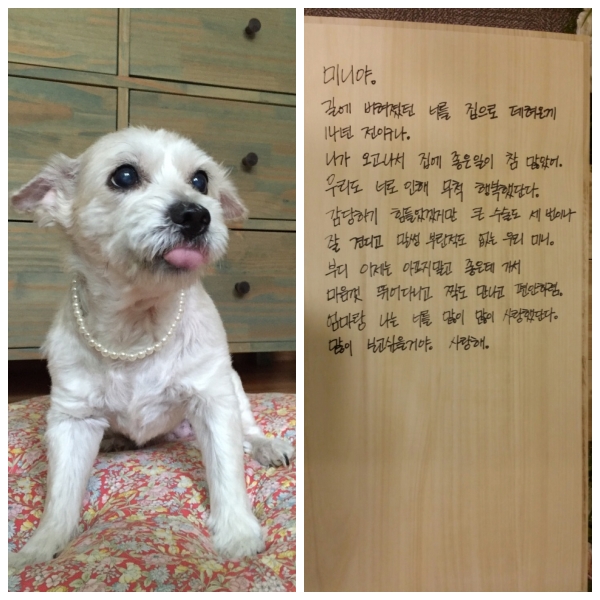 미니야.
길에 버려졌던 너를 집으로 데려온게
14년 전이구나.
너가 오고나서 집에 좋은일이 참 많았어.
우리도 너로 인해 무척 행복했단다.
감당하기 힘들었겠지만 큰 수술도 세 번이나
잘 견디고 말썽 부린적도 없는 우리 미니.
부디 이제는 아프지말고 좋은데 가서
마음껏 뛰어다니고 짝도 만나고 편안하렴.
엄마랑 나는 너를 많이 많이 사랑했단다.
많이 보고싶을거야. 사랑해.